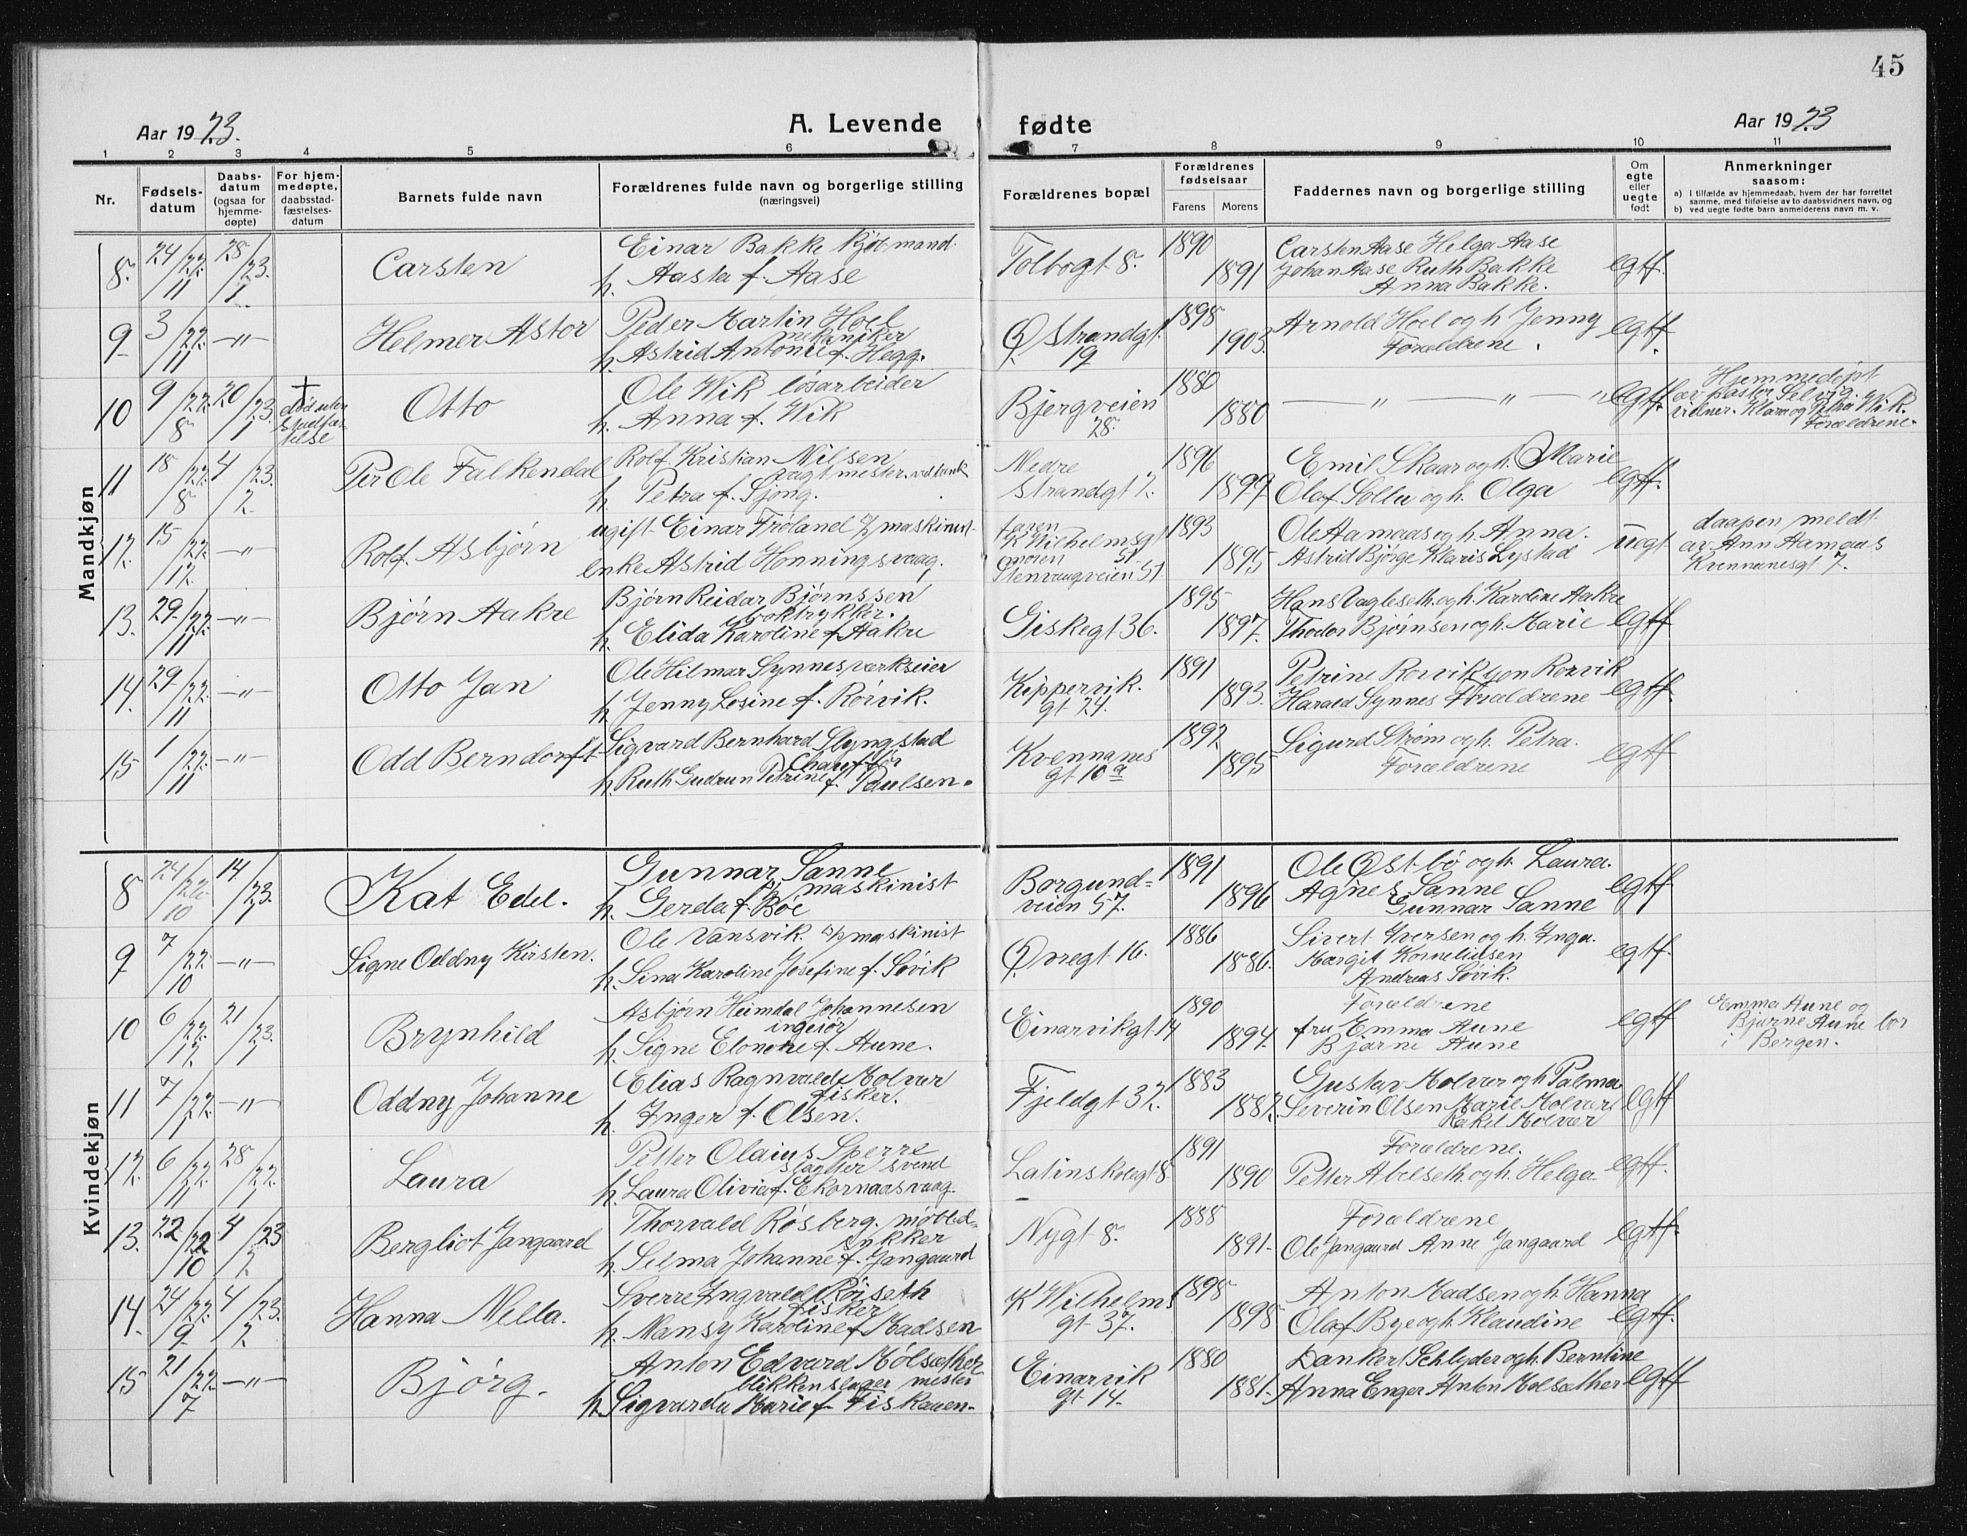 45
Aar 1923.
A. Levende
fødte
Aar 1923
1 2 3 4 5 6 7 8 9 10 11
Nr.
Fødsels-
datum
Daabs-
datum
(ogsaa for
hjemme-
døpte)
For hjem-
medøpte,
daabsstad-
fæstelses-
datum
Barnets fulde navn
Forældrenes fulde navn og borgerlige stilling
(næringsvei)
Forældrenes bopæl
Forældrenes
fødselsaar
Farens Morens
Faddernes navn og borgerlige stilling
Om
egte
eller
uegte
født
Anmerkninger
saasom:
a) i tilfælde av hjemmedaab, hvem der har forrettet
samme, med tilføielse av to daabsvidners navn, og
b) ved uegte fødte barn anmelderens navn m. v.
Mandkjøn
8. 24/11 22. 28/1 23. Carsten
Einar Bakke kjøbmand.
h. Aasta f. Aase
Tolbogt 8. 1890 1891
Carsten Aase Helga Aase
Johan Aase Ruth Bakke
Anna Bakke.
egtf.
9 3/11 22. —"— Helmer Astor
Peder Martin Hoel
mekaniker
h. Astrid Antonie f. Hegg.
Ø Strandgt.
19
1898 1903.
Arnold Hoel og h Jenny
Forældrene.
egtf.
10 9/8 22. 20/1 23. †
død uten
stadfæ-
telse
Otto
Ole Wik løsarbeider
h. Anna f. Wik
Bjergveien
28.
1880 1880
— " — " — "
egtf.
Hjemmedøpt
av pastor Selvig.
vidner. Klara og Petra Wik.
Forældrene.
11 18/8 22. 4/2 23. Per Ole Falkendal
Rolf Kristian Nilsen
vagtmester
h Petra f. Sjong.
Nedre
Strandgt 7.
1896 1899
Emil Skaar og h. Marie
Olaf Sollu og h. Olga
egtf.
12. 15/12. 22. —"— Rolf. Asbjørn
ugift. Einar Frøland maskinist
enke Astrid Honningsvaag.
faren
K Wilhelmsgt
51.
moren
Stenvaagveien 51
1893 1895
Ole Aamaas og h. Anna.
Astrid Bjørge Klaris Lystad
uegt
daapen meldt
av Ann Aamaas
Kvennanesgt 7.
13. 29/11 22. —"— Bjørn Aakre
Bjørn Reidar Bjørnssen
boktrykker.
h. Elida Karoline f. Aakre
Giskegt 36. 1895 1897.
Hans Vagleseth og h. Karoline Aakre
Thodor Bjørnsen og h. Marie
egtf
14. 29/11 22. —"— Otto Jan
Ole Hilmar Synnes værkseier
h Jenny Losine f. Rørvik.
Kippervik.
gt 24.
1891 1893.
Petrine Rørvik Gon Rørvik
Harald Synnes Forældrene
egtf.
15 1/11 22. —"— Odd Berndorft
Sigvard Bernhard Slyngstad
Chauffør
h. Ruth Gudrun Petrine f. Paulsen.
Kvennanes
gt 10 a
1892. 1895
Sigurd Strøm og h. Petra.
Forældrene
egtf
Kvindekjøn
8 24/10 22 14./1 23. Kat Edel.
Gunnar Sanne
maskinist
h. Gerda f. Bøe
Borgund-
veien 57.
1891 1896
Ole Østbø og h. Laura.
Agnes Sanne
Gunnar Sanne
egtf
9 7/10 22. —"— Signe Oddny Kirsten.
Ole Vansvik. maskinist
h. Sina Karoline Josefine f. Søvik
Ø negt 16. 1886 1886.
Sivert Iversen og h. Inga.
Margit Korneliusen
Andreas Søvik.
egtf
10 6/12. 22. 21/1 23. Brynhild
Asbjørn Heimdal Johannesen
ingeiør
h. Signe Elonore f. Aune.
Einarvikgt. 14
1890 1894.
Forældrene
fru Emma Aune
Bjarne Aune
egtf
Emma Aune og
Bjarne Aune bor
i Bergen.
11 7/1 22. —"— Oddny Johanne
Elias Ragnvald Molvær
fisker.
h. Inger f. Olsen.
Fjeldgt 32. 1883 1887.
Gustav Molvær og h Palma
Severin Olsen Marie Molvær
Rakel Molvær
egtf
12. 6/11 22. 28/1 22. Laura
Petter Olaius Sperre
slagtersvend
h. Laura Olivia f. Ekornaasvaag.
Latinskolegt 8. 1891 1890
Forældrene.
Petter Abelseth og h. Helga
egtf.
13. 22/10 22 4/2 23 Bergliot Jangaard
Thorvald Røsberg. møbed-
sykker
h. Selma Johanne f. Jangaard
Nygt 8. 1888 1891.
Forældrene
Ole Jangaard Anne Jangaard
egtf.
14. 24/9 22. 4/2 23. Hanna Nella.
Sverre Ingvald Røiseth
fisker
h. Mansy Karoline f Madsen
K Wilhelms
gt 37.
1898 1898
Anton Madsen og h. Hanna
Olaf Bye og h. Klaudine
egtf.
15 21/7 22. —"— Bjørg.
Anton Edvard Molsæther
blikkenslager mester
h. Sigvarda Marie f. Fiskaaen.
Einarvik
gt 14.
1880 1881.
Dankert Schlyder og h. Berntine
Anna Enger Anton Molsæther
egtf